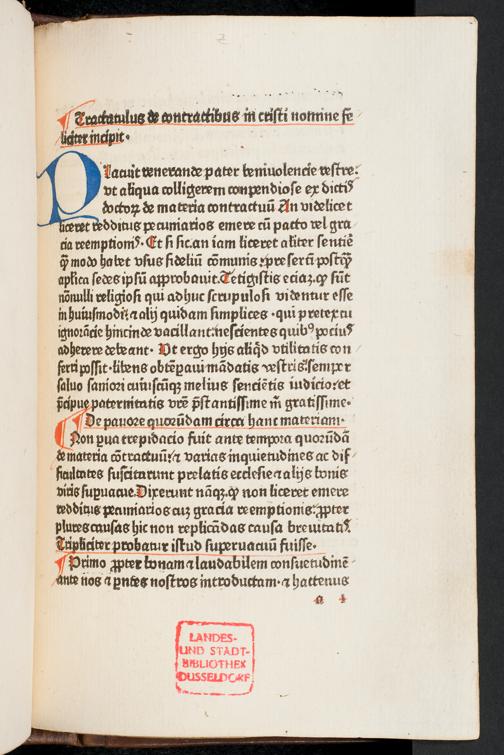 Tractatulus de contractibus in cristi nomine fe
liciter incipit.
Placuit venerande pater beniuolencie vestre:
vt aliqua colligerem conpendiose ex dictis
doctoꝝ de materia contractuū An videlicet
liceret redditus pecuniarios emere cū pacto vel gra
cia reemptionis. Et si sic. an iam liceret aliter sentiē
qͥ modo habet vsus fideliū cōmunis. presertī postqͣ
aplica sedes ipsū approbauit. Tetigistis eciaꝫ. ꝙ sūt
nōnulli religiosi qui adhuc scrupulosi videntur esse
in huiusmodi: ⁊ alij quidam simplices. qui pretextu
ignorācie hincinde vacillant: nescientes quibꝰ pociꝰ
adherere debeant. Vt ergo hijs aliqd vtilitatis con
ferri possit. libens obtēpaui mādatis vestris: semper
saluo saniori cuiuscūqꝫ melius sencietis iudicio: et
p̄cipue paternitatis vr̄e p̄stantissime m̄ gratissime.
De pauore quorūdam circa hanc materiam.
Non ꝑua trepidacio fuit ante tempora quorūdā
de materia cōtractuū: ⁊ varias inquietudines ac dif
ficultates suscitarunt prelatis ecclesie ⁊ alijs bonis
viris supuacue. Dixerunt nāqꝫ. ꝙ non liceret emere
redditus pecuniarios cuꝫ gracia reemptionis: ꝓpter
plures causas hic non replicādas causa breuitatis.
Tripliciter probatur istud superuacuū fuisse.
Primo ꝓpter bonam ⁊ laudabilem consuetudinē
ante nos ⁊ pn̄tes nostros introductam. ⁊ hactenus
a 1
LANDES-
UND STADT-
BIBLIOTHEK
DUSSELDORF